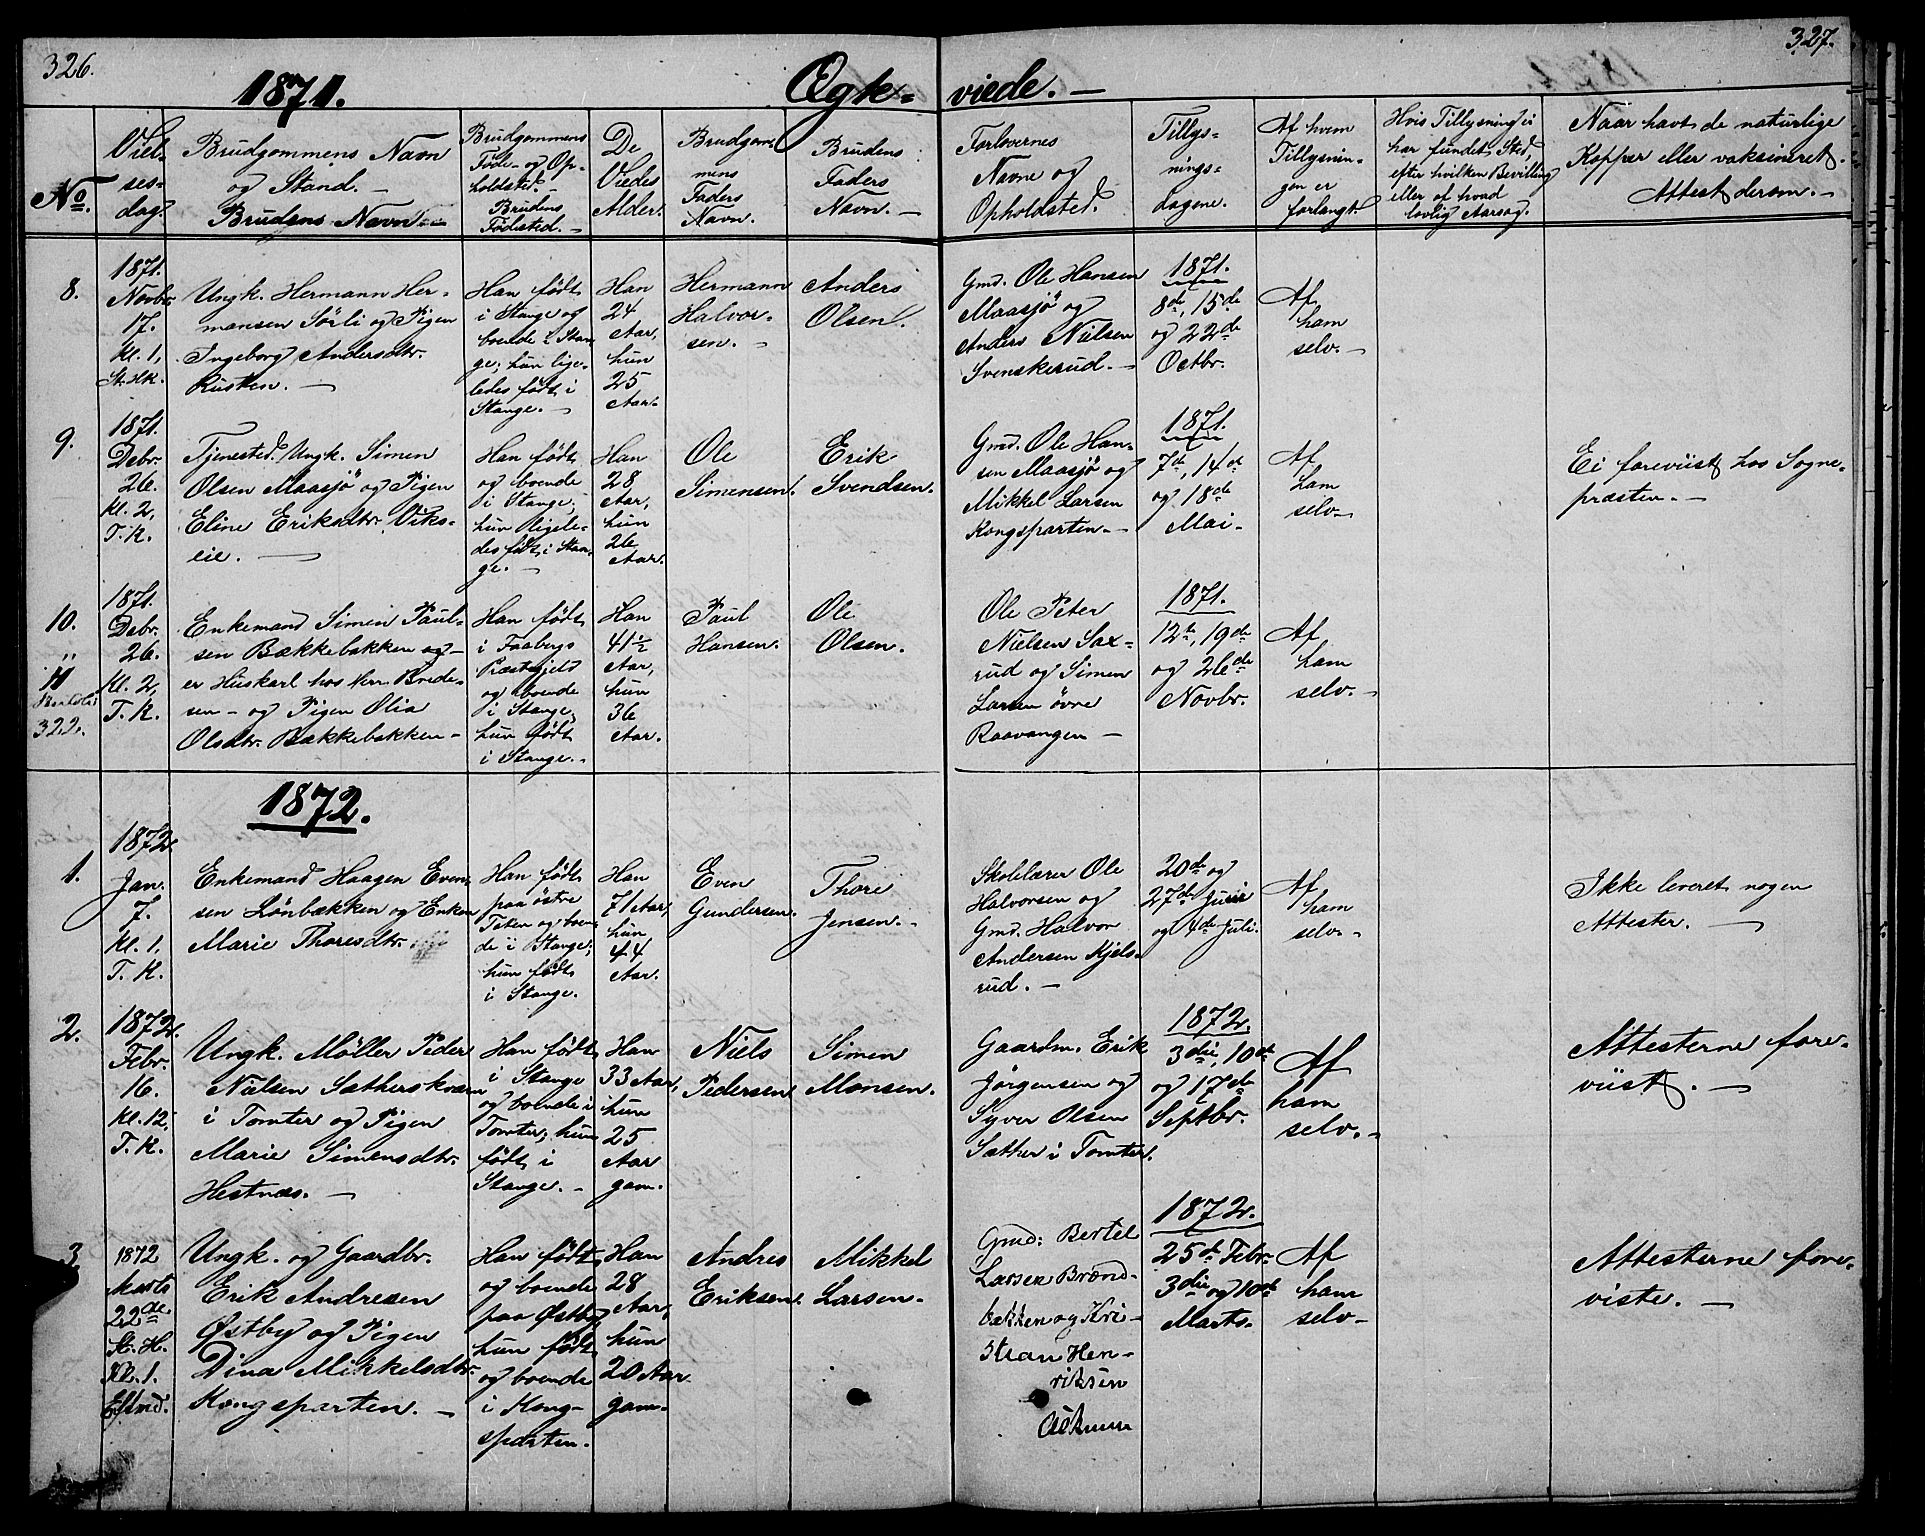 326.
327.
1871.
Ægte-viede. —
No.
Viel-
ses-
dag.
Brudgommens Navn
og Stand. —
Brudens Navn. —
Brudgommens
Føde- og Op-
holdsted. —
Brudens
Fødested. —
De
Viedes
Alder.
Brudgom-
mens
Faders
Navn.
Brudens
Faders
Navn. —
Forlovernes
Navne og
Opholdsted.
Tillys-
nings-
dagene.
Af hvem
Tillysnin-
gen er
forlangt.
Hvis Tillysning ei
har fundet Sted,
efter hvilken Bevilling
eller af hvad
lovlig Aarsag.
Naar havt de naturlige
Kopper eller vaksineret.
Attest derom. —
8.
1871.
Novbr.
17.
Kl. 1,
St. HK.
Ungk. Hermann Her-
mansen Sörli og Pigen
Ingeborg Andersdtr.
Rusten. —
Han født
i Stange og
boende i Stan-
ge; hun lige-
ledes født i
Stange. —
Han
24
Aar,
hun
25
Aar.
Hermann
Halvor-
sen. —
Anders
Olsen.
Gmd. Ole Hansen
Maasjö og
Anders Nielsen
Svenskerud. —
1871.
8de, 15de
og 22de
Octbr.
Af
ham
selv. —
9.
1871.
Debr.
26.
Kl. 2,
T. K.
Tjenested. Ungk. Simen
Olsen Maasjö og Pigen
Eline Eriksdtr. Viks-
eie. —
Han født
og boende
i Stange;
hun ligele-
des født i Stan-
ge. —
Han
28
Aar,
hun
26
Aar.
Ole
Simensen.
Erik
Svendsen.
Gmd. Ole Han-
sen Maasjö og
Mikkel Larsen
Kongsparten. —
1871.
7de, 14de
og 18de
Mai. —
Af
ham
selv. —
Ei foreviist hos Sogne-
præsten. —
10.
"
1871.
Debr.
26.
Kl. 2,
T. K.
322.
Enkemand Simen Paul-
sen Bækkebakken og —
er Huskarl hos Hrr. Brede-
sen — og Pigen Olia
Olsdtr. Bækkebakken —
Han født
i Faabergs
Præstegjeld
og boende
i Stange,
hun født
i Stange. —
Han
41½
Aar,
hun
36
Aar.
Paul
Hansen.
Ole
Olsen.
Ole Peter
Nielsen Sax-
rud og Simen
Larsen øvre
Raavangen —
1871.
12te, 19de
og 26de
Novbr.
Af
ham
selv. —
1872.
1.
1872.
Jan.
7.
Kl. 1,
T. K.
Enkemand Haagen Even-
sen Lönbækken og Enken
Marie Thoresdtr.
Han født
paa östre
Toten og boen-
de i Stange;
hun født
i Stange.
Han
71 Aar,
hun
44
Aar.
Even
Gundersen.
Thore
Jensen. —
Skolelærer Ole
Halvorsen og
Gmd. Halvor
Andersen Kjels-
rud. —
20de og
27de Juni
og 4de Juli.
Af
ham
selv. —
Ikke leveret nogen
Attester. —
2.
1872.
Febr.
16.
Kl. 12,
T. K.
Ungk. Möller Peder
Nielsen Sætherskværn
i Tomter og Pigen
Marie Simensdtr.
Hestnæs. —
Han født
i Stange
og boende i
Tomter; hun
født i
Stange. —
Han
33 Aar,
hun
25
Aar
gam.
Niels
Pedersen
Simen
Monsen.
Gaardm. Erik
Jörgensen og
Syver Olsen
Sæther i Tomter.
1872.
3die, 10de
og 17de
Septbr.
Af
ham
selv. —
Attesterne fore-
viist. —
3.
1872
Marts
22de.
St. H.
Kl. 1.
Eftmd.
Ungk. og Gaardbr.
Erik Andresen
Østby og Pigen
Dina Mikkelsdtr.
Kongsparten. —
Han født
og boende
paa Østby,
hun født
og boende
i Kong-
sparten.
Han
28
Aar,
hun
20 Aar
gam.
Andres
Eriksen.
Mikkel
Larsen.
Gmd: Bertel
Larsen Brænd-
bækken og Kri-
stian Hen-
riksen
1872.
25de Febr.
3die og 10de
Marts.
Af
ham
selv —
Attesterne fore-
viste. —